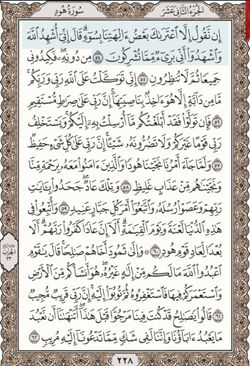 الجزء الثاني عشر
سورة هود
إِن نَّقُولُ إِلَّا ٱعْتَرَىٰكَ بَعْضُ ءَالِهَتِنَا بِسُوٓءٍ قَالَ إِنِّىٓ أُشْهِدُ ٱللَّهَ
وَٱشْهَدُوٓا۟ أَنِّى بَرِىٓءٌ مِّمَّا تُشْرِكُونَ ٥٤ مِن دُونِهِۦ فَكِيدُونِى
جَمِيعًا ثُمَّ لَا تُنظِرُونِ ٥٥ إِنِّى تَوَكَّلْتُ عَلَى ٱللَّهِ رَبِّى وَرَبِّكُم
مَّا مِن دَآبَّةٍ إِلَّا هُوَ ءَاخِذٌۢ بِنَاصِيَتِهَآ إِنَّ رَبِّى عَلَىٰ صِرَٰطٍ مُّسْتَقِيمٍ
٥٦ فَإِن تَوَلَّوْا۟ فَقَدْ أَبْلَغْتُكُم مَّآ أُرْسِلْتُ بِهِۦٓ إِلَيْكُمْ وَيَسْتَخْلِفُ
رَبِّى قَوْمًا غَيْرَكُمْ وَلَا تَضُرُّونَهُۥ شَيْـًٔا إِنَّ رَبِّى عَلَىٰ كُلِّ شَىْءٍ حَفِيظٌ
٥٧ وَلَمَّا جَآءَ أَمْرُنَا نَجَّيْنَا هُودًا وَٱلَّذِينَ ءَامَنُوا۟ مَعَهُۥ بِرَحْمَةٍ مِّنَّا
وَنَجَّيْنَٰهُم مِّنْ عَذَابٍ غَلِيظٍ ٥٨ وَتِلْكَ عَادٌ جَحَدُوا۟ بِـَٔايَٰتِ
رَبِّهِمْ وَعَصَوْا۟ رُسُلَهُۥ وَٱتَّبَعُوٓا۟ أَمْرَ كُلِّ جَبَّارٍ عَنِيدٍ ٥٩ وَأُتْبِعُوا۟ فِى
هَٰذِهِ ٱلدُّنْيَا لَعْنَةً وَيَوْمَ ٱلْقِيَٰمَةِ أَلَآ إِنَّ عَادًا كَفَرُوا۟ رَبَّهُمْ أَلَا
بُعْدًا لِّعَادٍ قَوْمِ هُودٍ ٦٠ وَإِلَىٰ ثَمُودَ أَخَاهُمْ صَٰلِحًا قَالَ يَٰقَوْمِ
ٱعْبُدُوا۟ ٱللَّهَ مَا لَكُم مِّنْ إِلَٰهٍ غَيْرُهُۥ هُوَ أَنشَأَكُم مِّنَ ٱلْأَرْضِ
وَٱسْتَعْمَرَكُمْ فِيهَا فَٱسْتَغْفِرُوهُ ثُمَّ تُوبُوٓا۟ إِلَيْهِ إِنَّ رَبِّى قَرِيبٌ مُّجِيبٌ
٦١ قَالُوا۟ يَٰصَٰلِحُ قَدْ كُنتَ فِينَا مَرْجُوًّا قَبْلَ هَٰذَآ أَتَنْهَىٰنَآ أَن نَّعْبُدَ
مَا يَعْبُدُ ءَابَآؤُنَا وَإِنَّنَا لَفِى شَكٍّ مِّمَّا تَدْعُونَآ إِلَيْهِ مُرِيبٍ ٦٢
٢٢٨